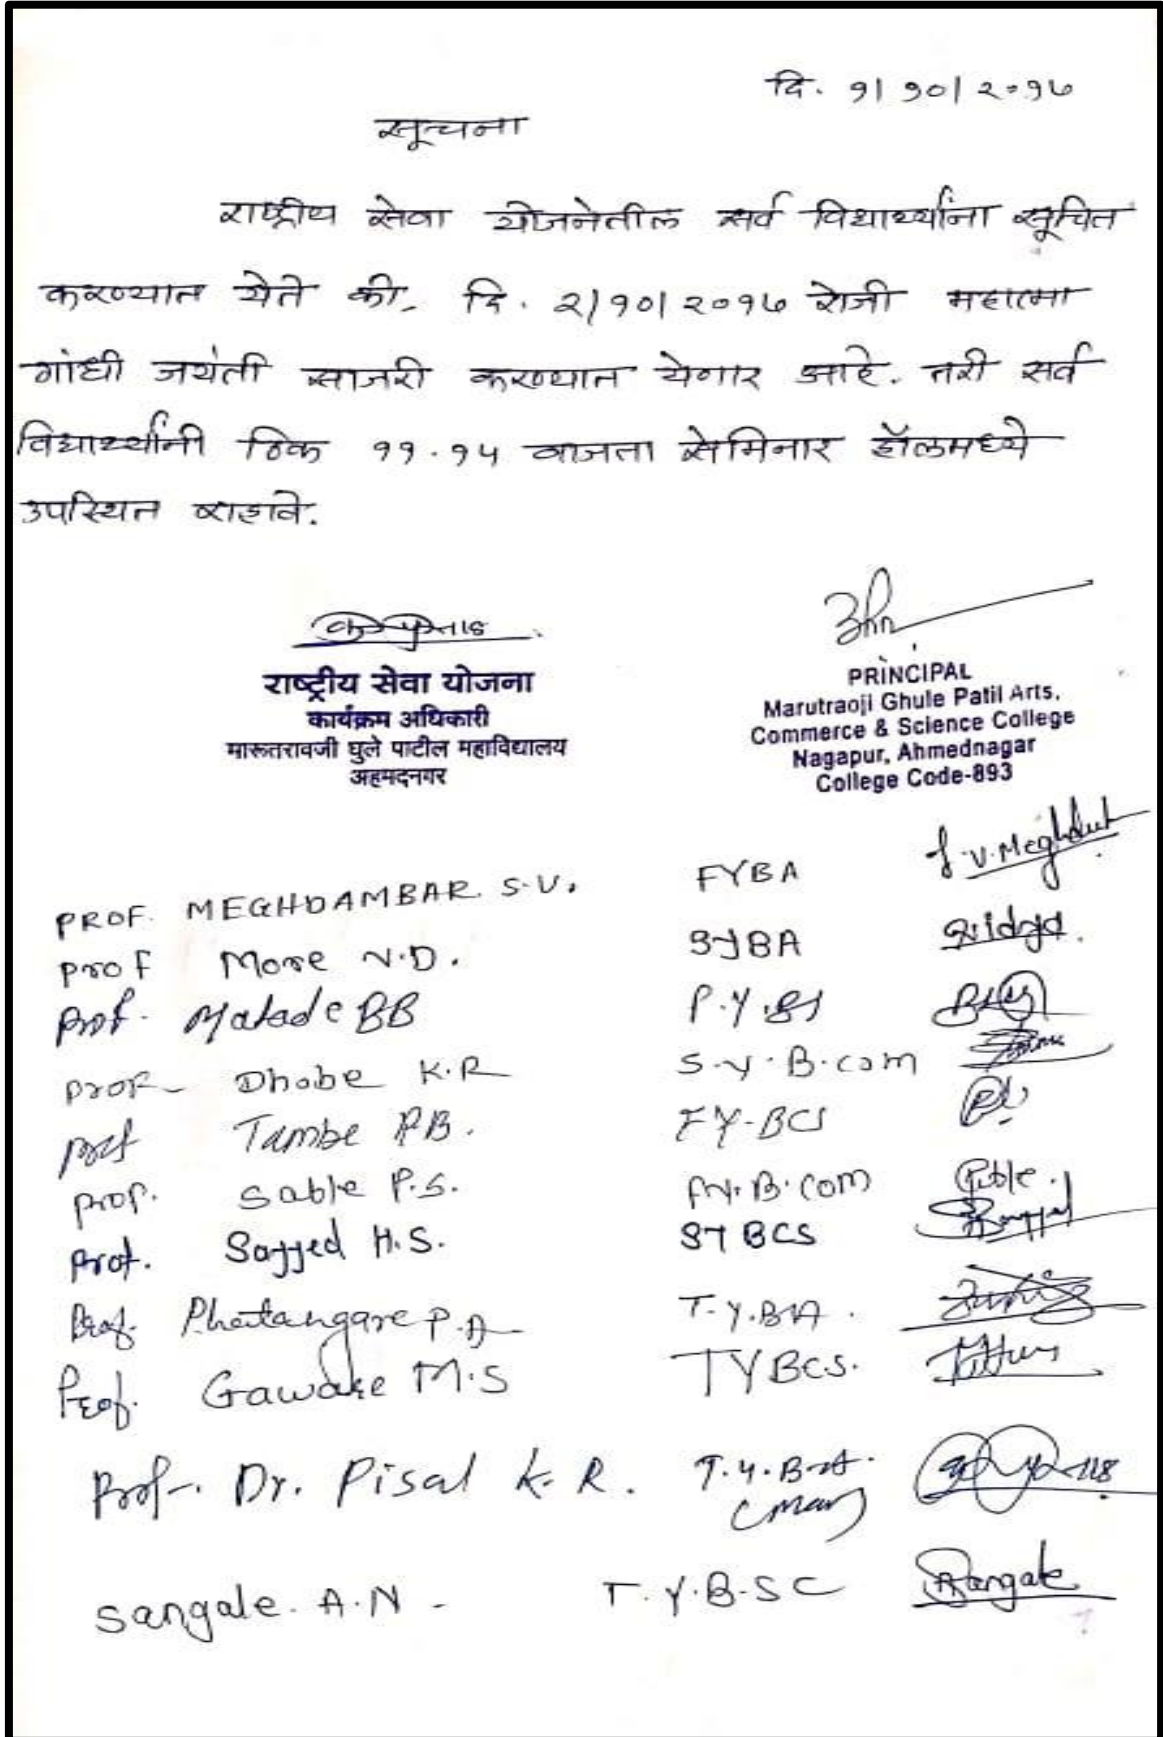 दि. १/१०/२०१७
सूचना
राष्ट्रीय सेवा योजनेतील सर्व विद्यार्थ्यांना सूचित
करण्यात येते की, दि. २/१०/२०१७ रोजी महात्मा
गांधी जयंती साजरी करण्यात येणार आहे. तरी सर्व
विद्यार्थ्यांनी ठिक ११.१५ वाजता सेमिनार हॉलमध्ये
उपस्थित राहावे.
राष्ट्रीय सेवा योजना
कार्यक्रम अधिकारी
मारूतरावजी घुले पाटील महाविद्यालय
अहमदनगर
PRINCIPAL
Marutraoji Ghule Patil Arts,
Commerce & Science College
Nagapur, Ahmednagar
College Code-893
PROF. MEGHDAMBAR S.V. FYBA
Prof More N.D. SYBA
Prof. Matade BB
Prof Dhobe K.R S.Y.B.com
Prof Tambe P.B. FY-BCS
Prof. Sable P.S. F.Y.B.com
Prof. Sayyed H.S. SY BCS
Prof. Phatangare P.A T.Y.BA.
Prof. Gaware M.S TYBCS.
Prof. Dr. Pisal K.R. T.Y.B.A.
(Mar)
Sangale. A.N - T.Y.B.SC Sangale